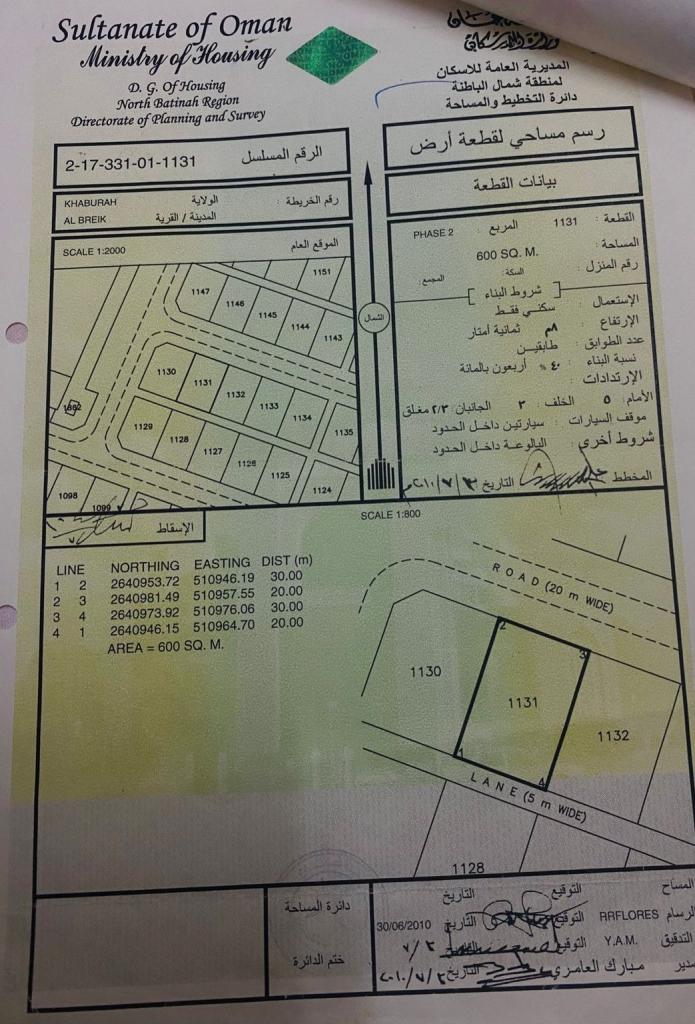 Sultanate of Oman
Ministry of Housing
D. G. Of Housing
North Batinah Region
Directorate of Planning and Survey
المديرية العامة للاسكان
لمنطقة شمال الباطنة
دائرة التخطيط والمساحة
2-17-331-01-1131 الرقم المسلسل
رسم مساحي لقطعة أرض
KHABURAH الولاية رقم الخريطة :
AL BREIK المدينة / القرية
بيانات القطعة
SCALE 1:2000 الموقع العام
القطعة : 1131 المربع : PHASE 2
المساحة : 600 SQ. M.
رقم المنزل : السكة: المجمع:
شروط البناء
الإستعمال : سكني فقط
الإرتفاع : ٨م ثمانية أمتار
عدد الطوابق : طابقين
نسبة البناء : ٤٠ % أربعون بالمائة
الإرتدادات :
الأمام: ٥ الخلف: ٣ الجانبان: ٢/٣ مغلق
موقف السيارات : سيارتين داخل الحدود
شروط أخرى : البالوعة داخل الحدود
المخطط التاريخ
الشمال
1151
1147
1146
1145
1144
1143
1130
1131
1132
1133
1134
1135
1129
1128
1127
1126
1125
1124
1098
1099
الإسقاط
SCALE 1:800
LINE NORTHING EASTING DIST (m)
1 2 2640953.72 510946.19 30.00
2 3 2640981.49 510957.55 20.00
3 4 2640973.92 510976.06 30.00
4 1 2640946.15 510964.70 20.00
AREA = 600 SQ. M.
ROAD (20 m WIDE)
2
3
1130
1131
1132
1
4
LANE (5 m WIDE)
1128
دائرة المساحة
ختم الدائرة
المساح التوقيع التاريخ
الرسام RRFLORES التوقيع التاريخ 30/06/2010
التدقيق Y.A.M. التوقيع
مبارك العامري التاريخ